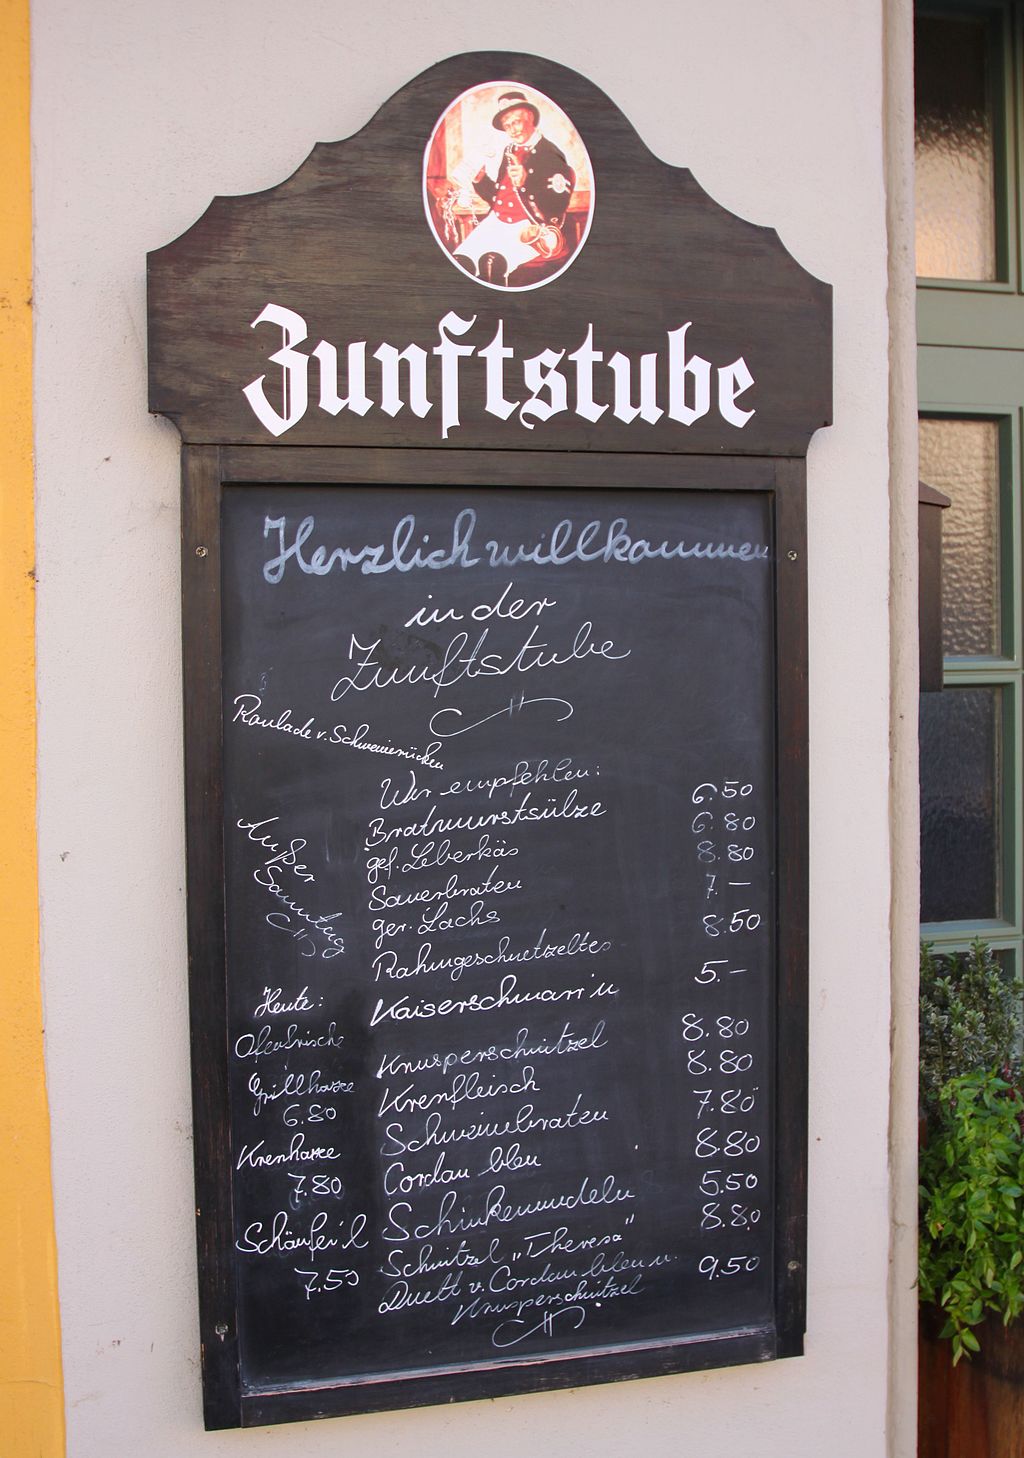 Zunftstube
Herzlich willkommen
in der
Zunftstube
Roulade v. Schweinerücken
Wir empfehlen:
Bratwurstsülze 6.50
gef. Leberkäs 6.80
Sauerbraten 8.80
ger. Lachs 7.–
Rahmgeschnetzeltes 8.50
Kaiserschmarr'n 5.–
Knusperschnitzel 8.80
Krenfleisch 8.80
Schweinebraten 7.80
Cordau bleu 8.80
Schinkennudeln 5.50
Schnitzel „Theresa" 8.80
Duett v. Cordau bleu u. 9.50
Knusperschnitzel
Außer
Sonntag
Heute:
Ofenfrische
Grillhaxe
6.80
Krenhaxe
7.80
Schäufei'l
7.50